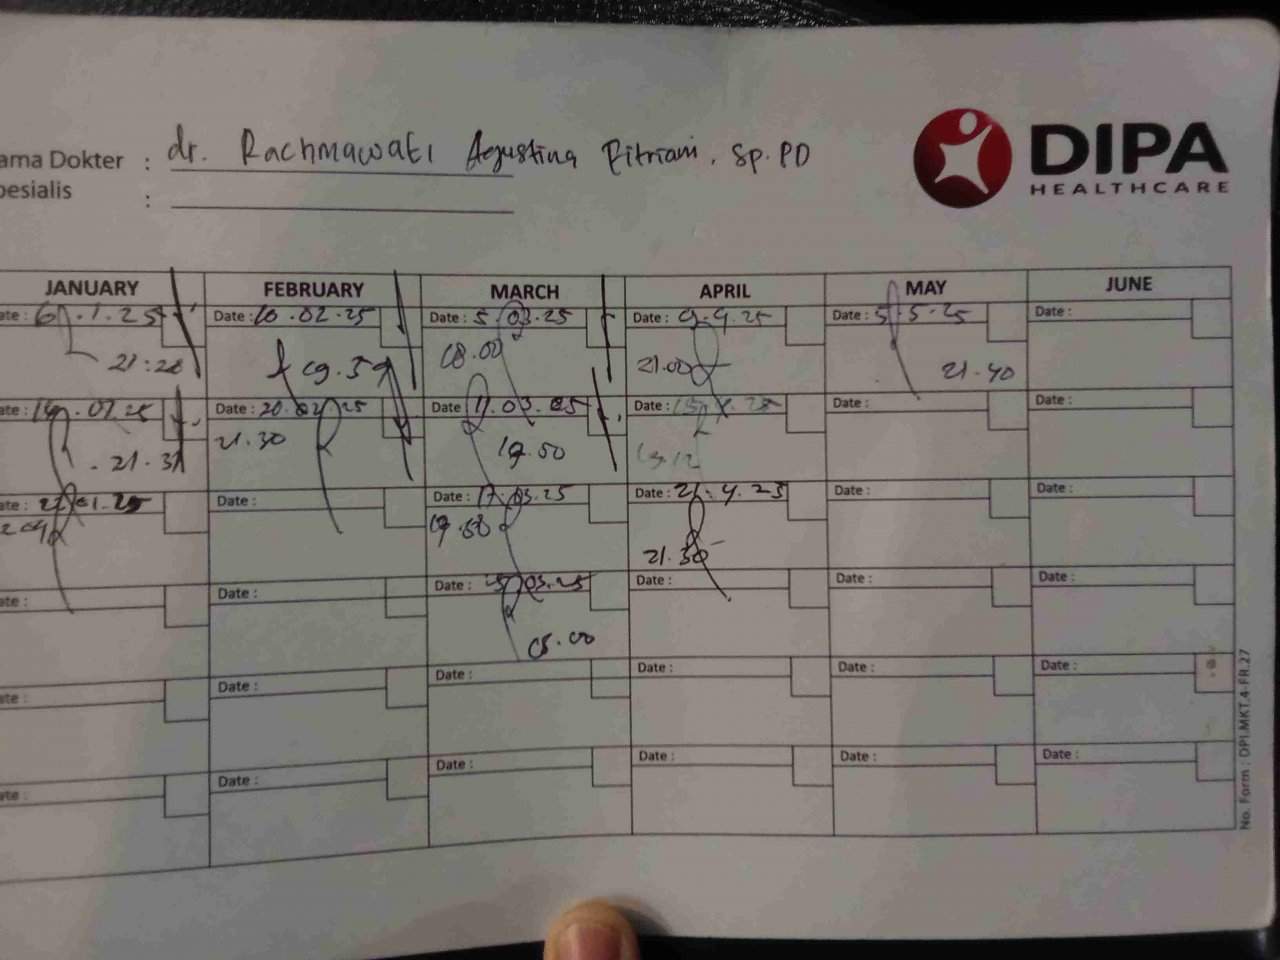 ama Dokter : dr. Rachmawati Agustina Fitriani, Sp.PD
pesialis :
DIPA
HEALTHCARE
JANUARY FEBRUARY MARCH APRIL MAY JUNE
ate : 6.1.25 Date : 10.02.25 Date : 5.03.25 Date : 9.4.25 Date : 5.5.25 Date :
21:28 19.59 18.00 21.00 21.40
ate : Date : 20.02.25 Date : 11.03.25 Date : Date : Date :
21.31 21.30 19.50 19.12
ate : 22.01.25 Date : Date : 17.03.25 Date : 21.4.25 Date : Date :
19.58 21.30
ate : Date : Date : 03.25 Date : Date : Date :
ate : Date : Date : Date : Date : Date :
ate : Date : Date : Date : Date : Date :
No. Form : DPI.MKT.4-FR.27